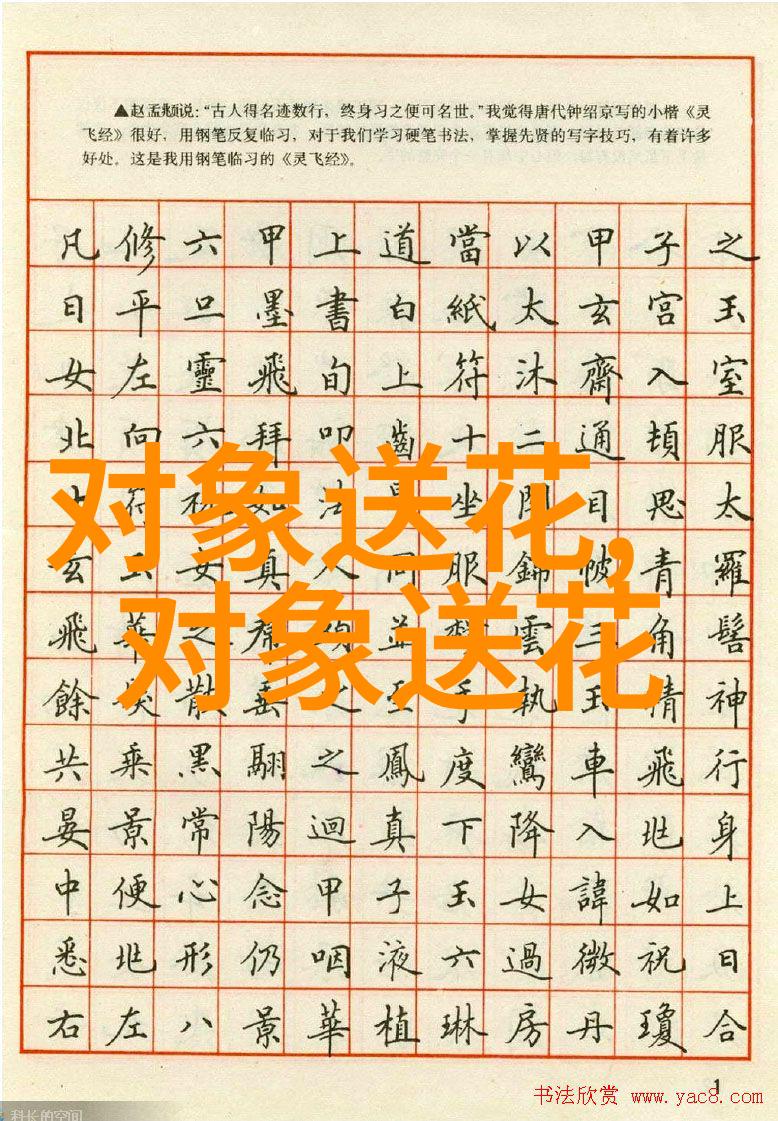 ▲赵孟頫说：“古人得名迹数行，终身习之便可名世。”我觉得唐代钟绍京写的小楷《灵
飞经》很好，用钢笔反复临习，对于我们学习硬笔书法，掌握先贤的写字技巧，有着许多
好处。这是我用钢笔临习的《灵飞经》。
凡修六甲上道當以甲子之
日平旦墨書白紙太玄宮玉
女左靈飛旬上符沐齋入室
北向六拜叩齒十二通頓服
上符如法坐目思太
对象送花,
玄女真人同服錦帔青羅
飛華之並雲三角髻
对象送花
餘髮散垂之至手執玉精神
共乘黑翮之鳳度鸞車飛行
晏景常陽迴真下降入兆身
中便心念甲子玉女諱如上
悉兆形仍咽液六過微祝曰
右左八景華植琳房丹瓊合
1
书法欣赏 www.yac8.com
科长的空间